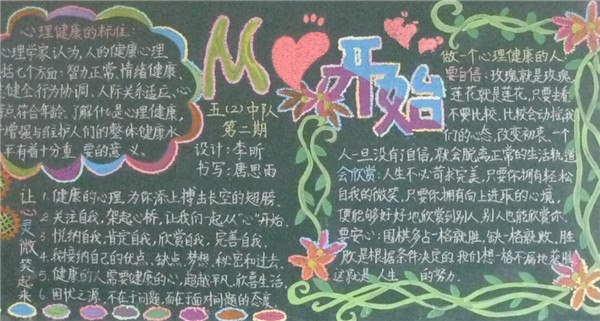 心理健康的标准:
心理学家认为,人的健康心理
括七个方面:智力正常、情绪健康、
健全行为协调、人际关系适应、心
点符合年龄、了解什么是心理健康,
增强与维护人们的整体健康水
平有着十分重要的意义。
从 开始
五(2)中队
第二期
设计:李昕
书写:唐思雨
做一个心理健康的人
要自信:玫瑰就是玫瑰,
莲花就是莲花,只要去看
不要比较,比较会动摇我
们的心态,改变初衷。一个
人一旦没有了自信,就会脱离正常的生活轨道
会欣赏:人生不必苛求完美,只要拥有轻松
自我的微笑,只要你拥有向上进取的心境,
便能够好好地欣赏到别人,别人也能欣赏你。
要安心:围棋多占一格就胜,缺一格就败,胜
败是根据条件决定的,我们想不漏地获胜
这就是人生 的努力。
让心灵微笑起来
1.健康的心理,为你添上搏击长空的翅膀.
2.关注自我,架起心桥,让我们一起从“心”开始.
3.悦纳自我,肯定自我,欣赏自我,完善自我.
4.我接纳自己的优点、缺点、梦想、秘密和过去.
5.健康的人需要健康的心,超越平凡,欣喜生活.
6.困扰之源,不在于问题,而在于面对问题的态度.